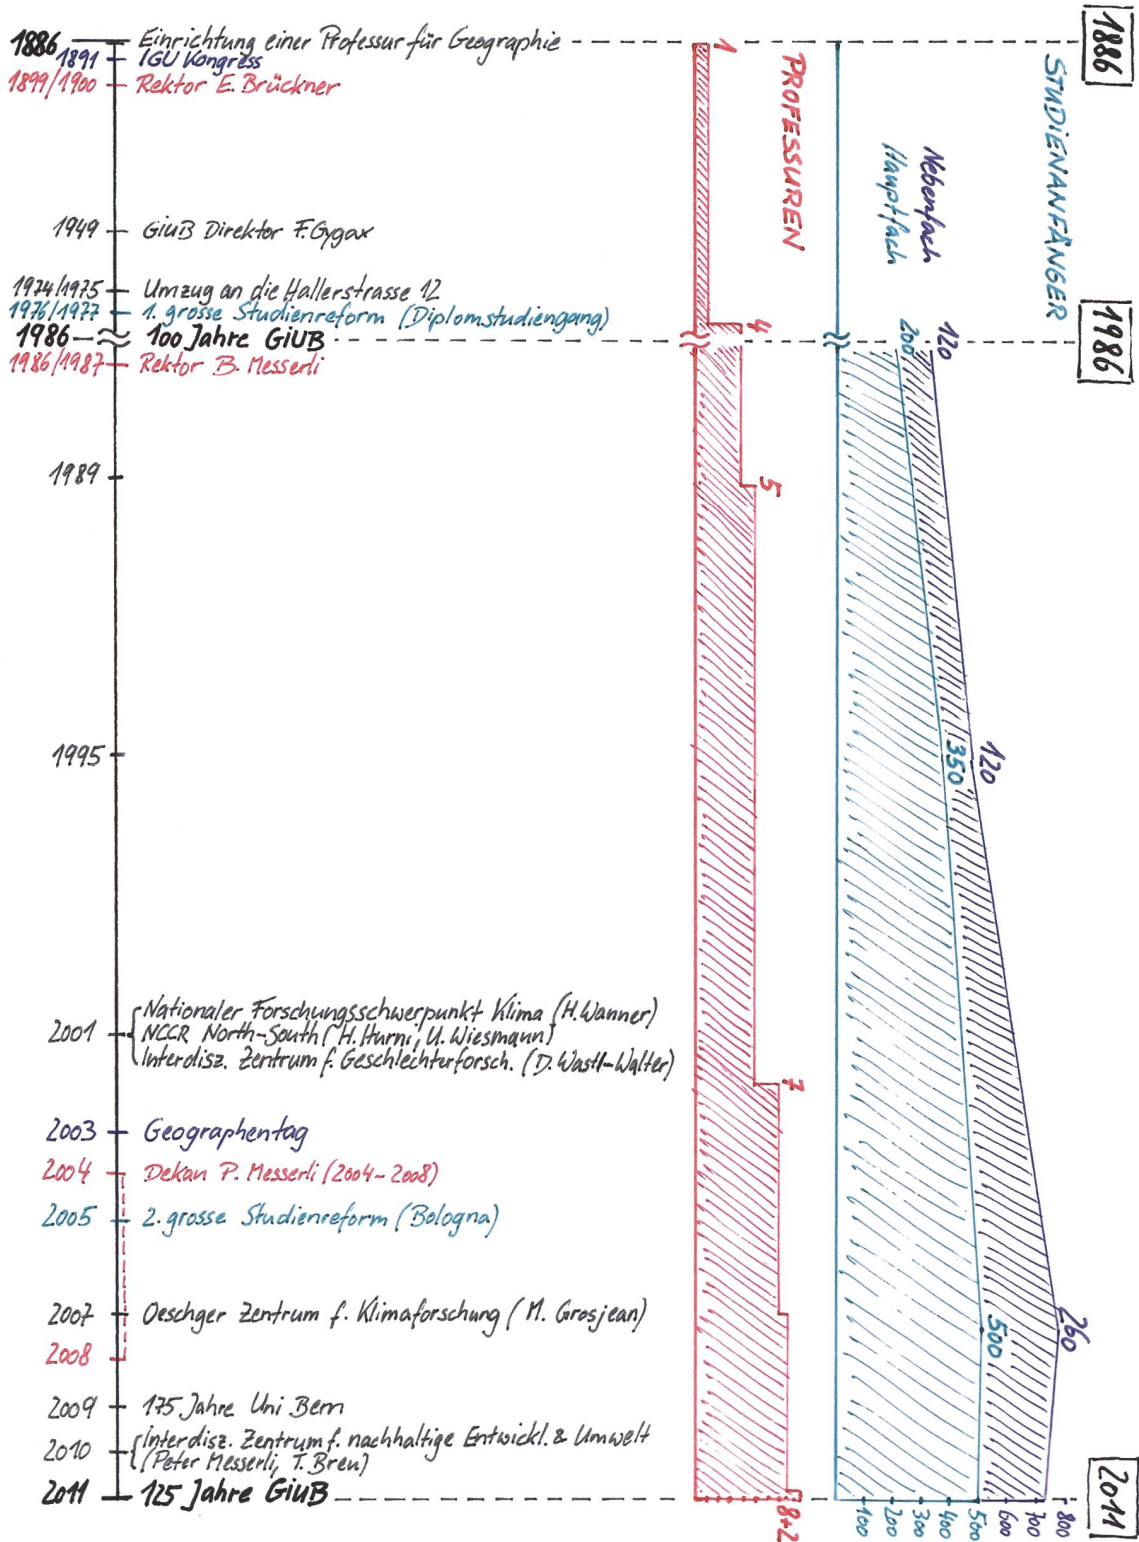 1886 Einrichtung einer Professur für Geographie
1891 IGU Kongress
1899/1900 Rektor E. Brückner
1949 GiuB Direktor F. Gygax
1974/1975 Umzug an die Hallerstrasse 12
1976/1977 1. grosse Studienreform (Diplomstudiengang)
1986 100 Jahre GIUB
1986/1987 Rektor B. Messerli
1989
1995
Nationaler Forschungsschwerpunkt Klima (H. Wanner)
2001 NCCR North-South (H. Hurni, U. Wiesmann)
Interdisz. Zentrum f. Geschlechterforsch. (D. Wastl-Walter)
2003 Geographentag
2004 Dekan P. Messerli (2004-2008)
2005 2. grosse Studienreform (Bologna)
2007 Oeschger Zentrum f. Klimaforschung (M. Grosjean)
2008
2009 175 Jahre Uni Bern
Interdisz. Zentrum f. nachhaltige Entwickl. & Umwelt
2010 (Peter Messerli, T. Breu)
2011 125 Jahre GiuB
PROFESSUREN
1
4
5
7
8+2
STUDIENANFÄNGER
Nebenfach
Hauptfach
120
200
120
350
260
500
100 200 300 400 500 600 700 800
1886
1986
2011